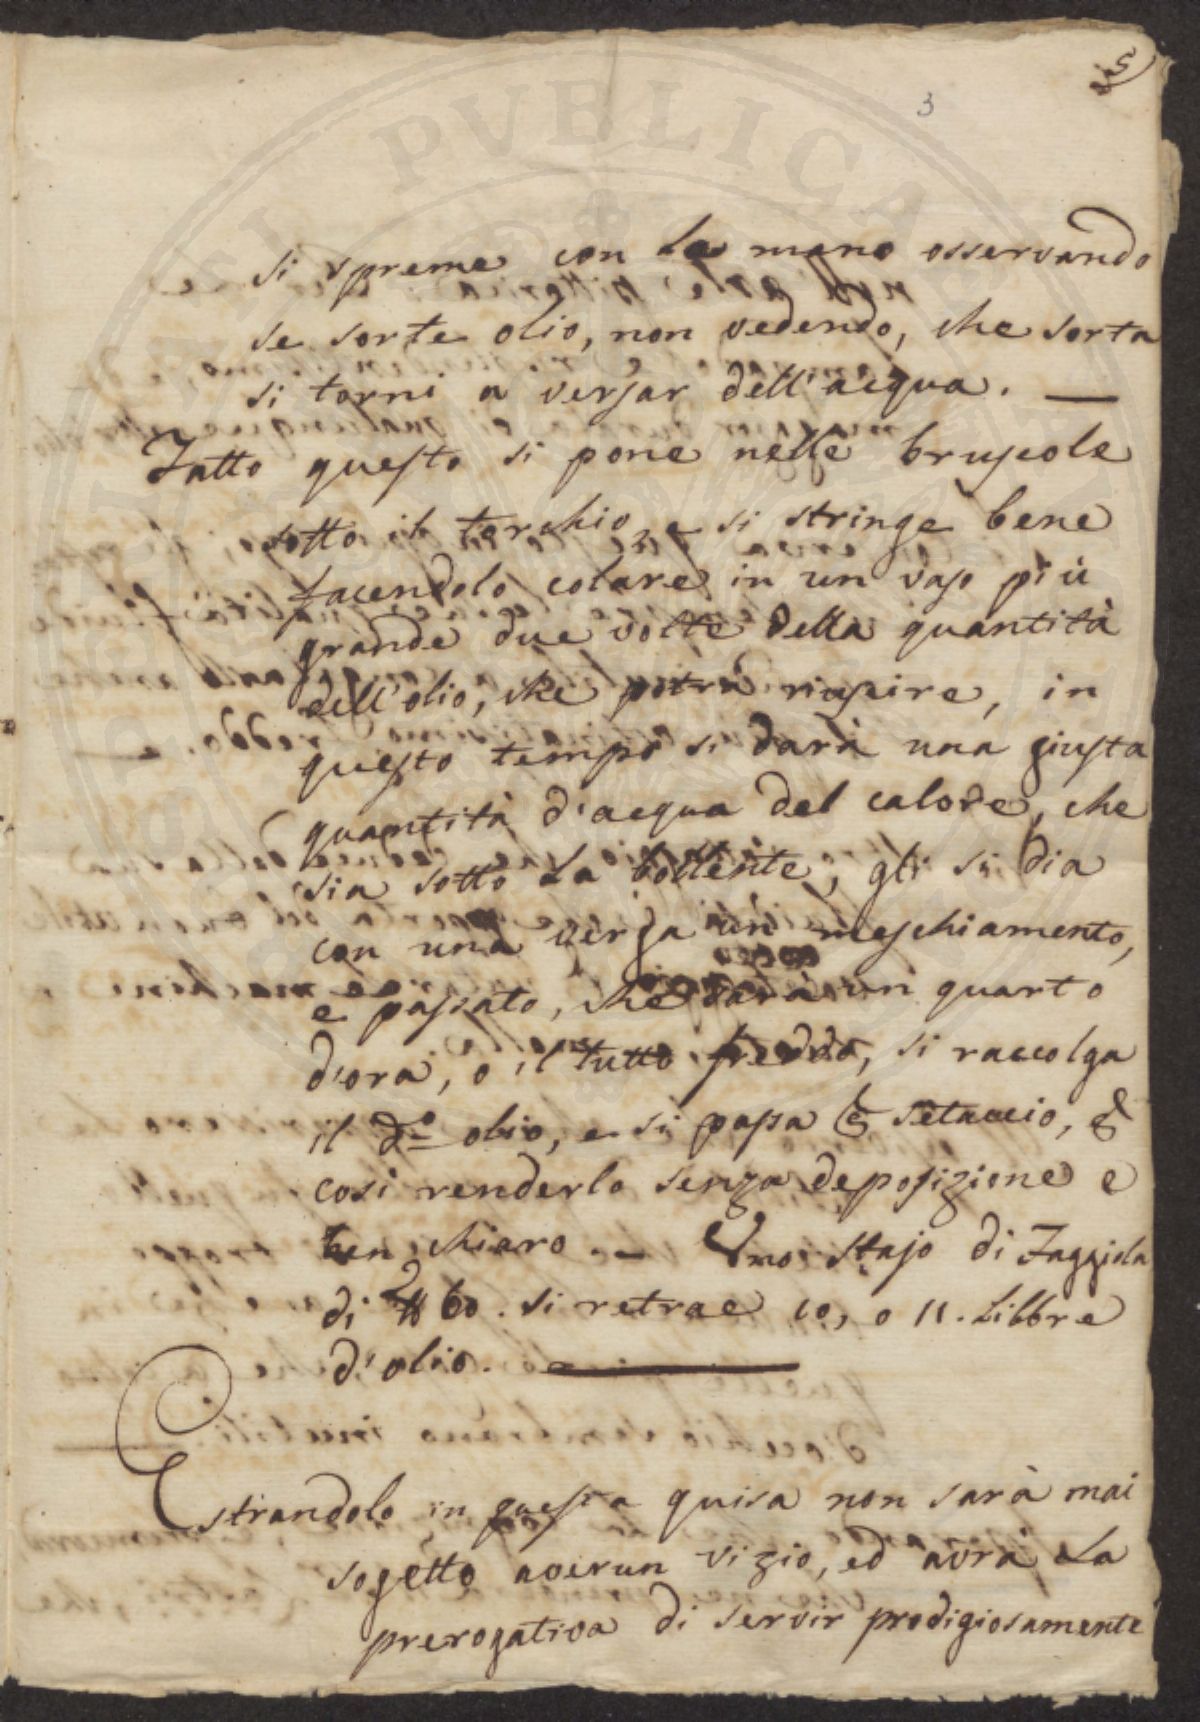 5
3
si spreme con la mano osservando
se sorte olio, non vedendo, che sorta
si torni a versar dell'acqua. —
Fatto questo si pone nelle bruscole
sotto il torchio, e si stringe bene
facendolo colare in un vaso più
grande due volte della quantità
dell'olio, che potrà riuscire, in
questo tempo si darà una giusta
quantità d'acqua del calore, che
sia sotto la bollente, gli si dia
con una verga un meschiamento,
e passato, che sarà un quarto
d'ora, o il tutto freddo, si raccolga
il do olio, e si passa setaccio,
così renderlo senza deposizione e
ben chiaro. — Uno stajo di Faggiola
di 60. si retrae 10, o 11. Libbre
d'olio. —
Estrandolo in questa guisa non sarà mai
sogetto averun vizio, ed avrà la
prerogativa di servir prodigiosamente